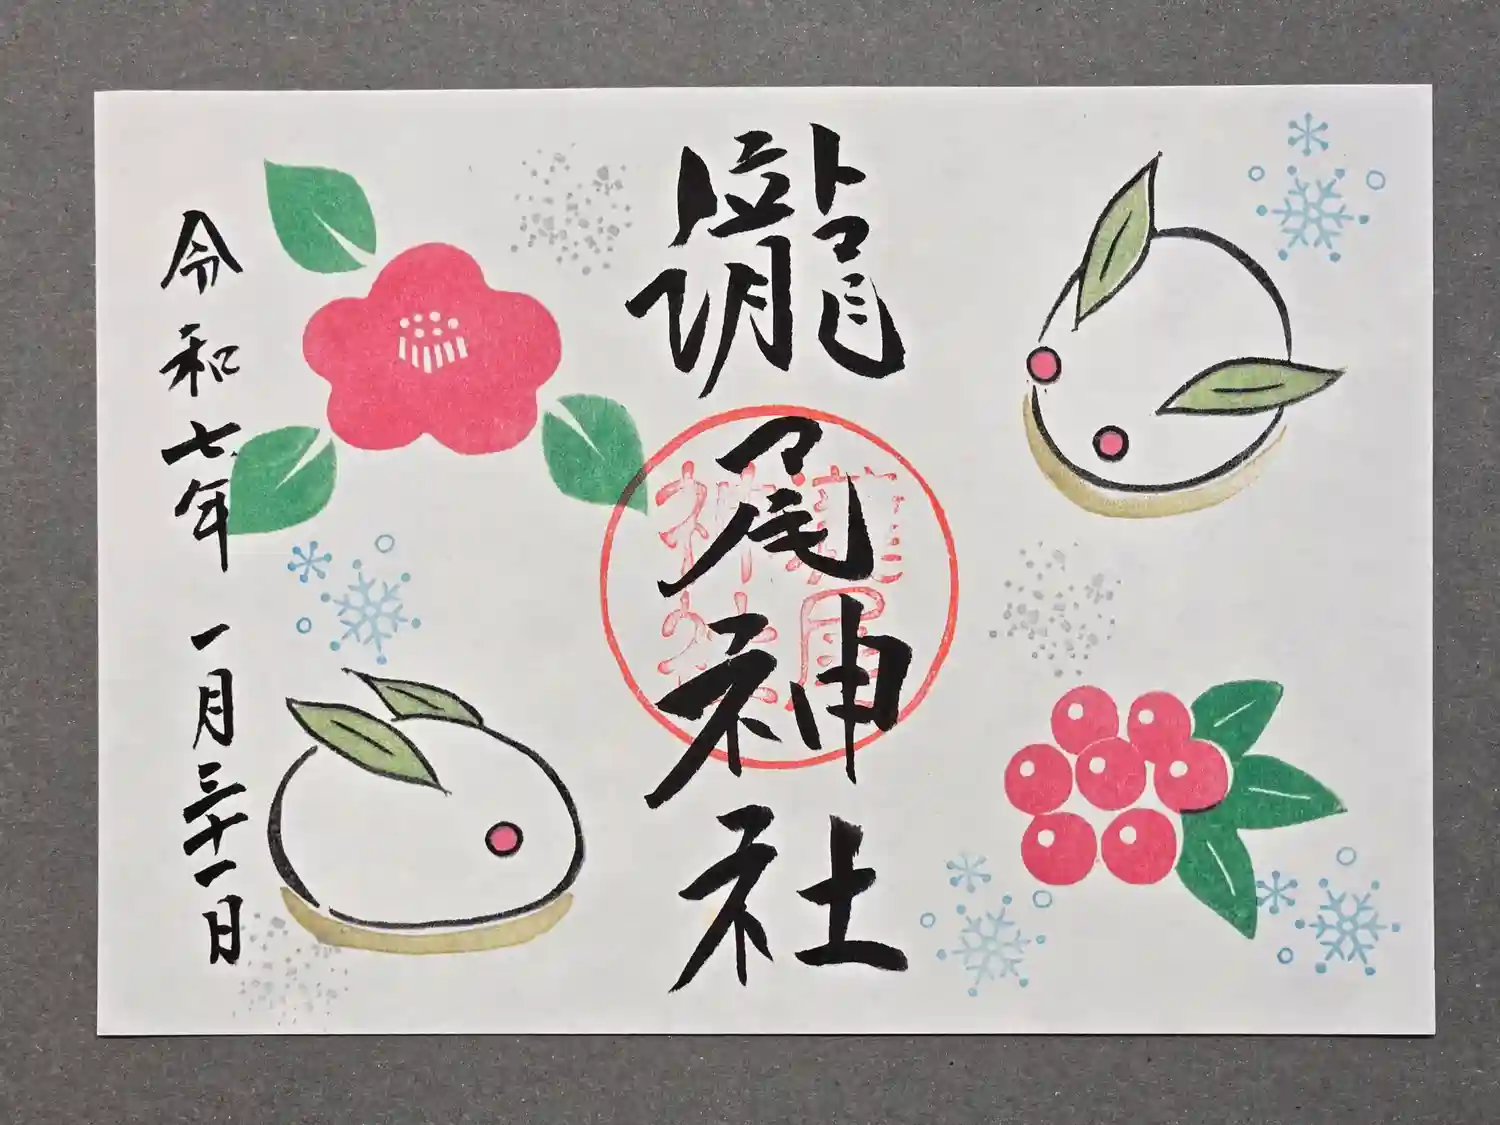 瀧尾神社
瀧尾
神社
令和七年 一月三十一日